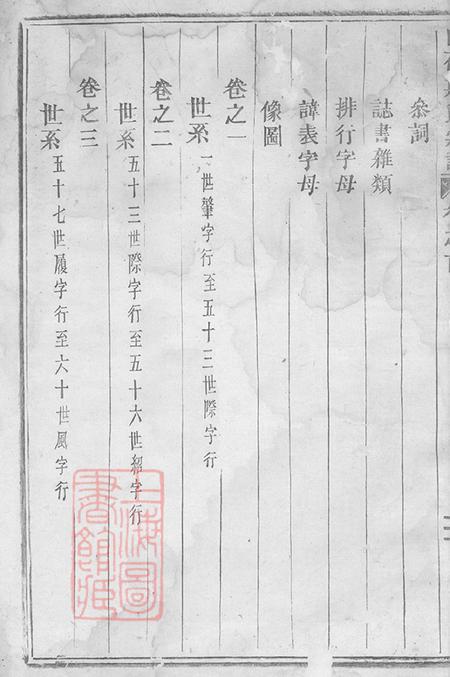 祭詞
誌書雜類
排行字母
諱表字母
像圖
卷之一
世系 一世肇字行至五十三世際字行
卷之二
世系 五十三世際字行至五十六世紹字行
卷之三
世系 五十七世履字行至六十世風字行
上海圖
書館藏